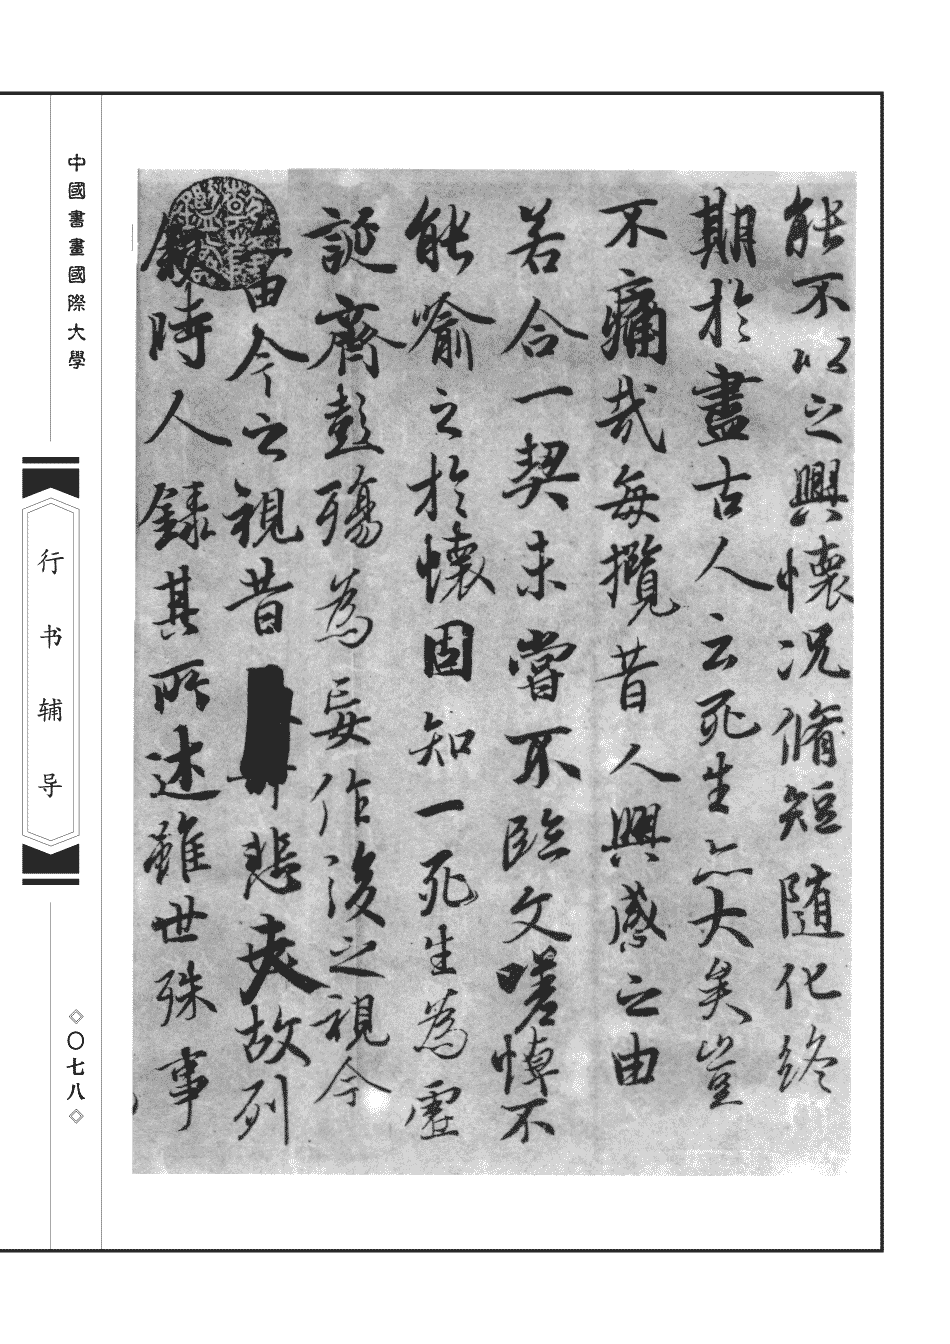 能不以之興懷況脩短随化終
期於盡古人云死生亦大矣豈
不痛哉每攬昔人興感之由
若合一契未嘗不臨文嗟悼不
能喻之於懷固知一死生為虛
誕齊彭殤為妄作後之視今
由今之視昔悲夫故列
敘時人錄其所述雖世殊事
中國書畫國際大學
行书辅导
〇七八